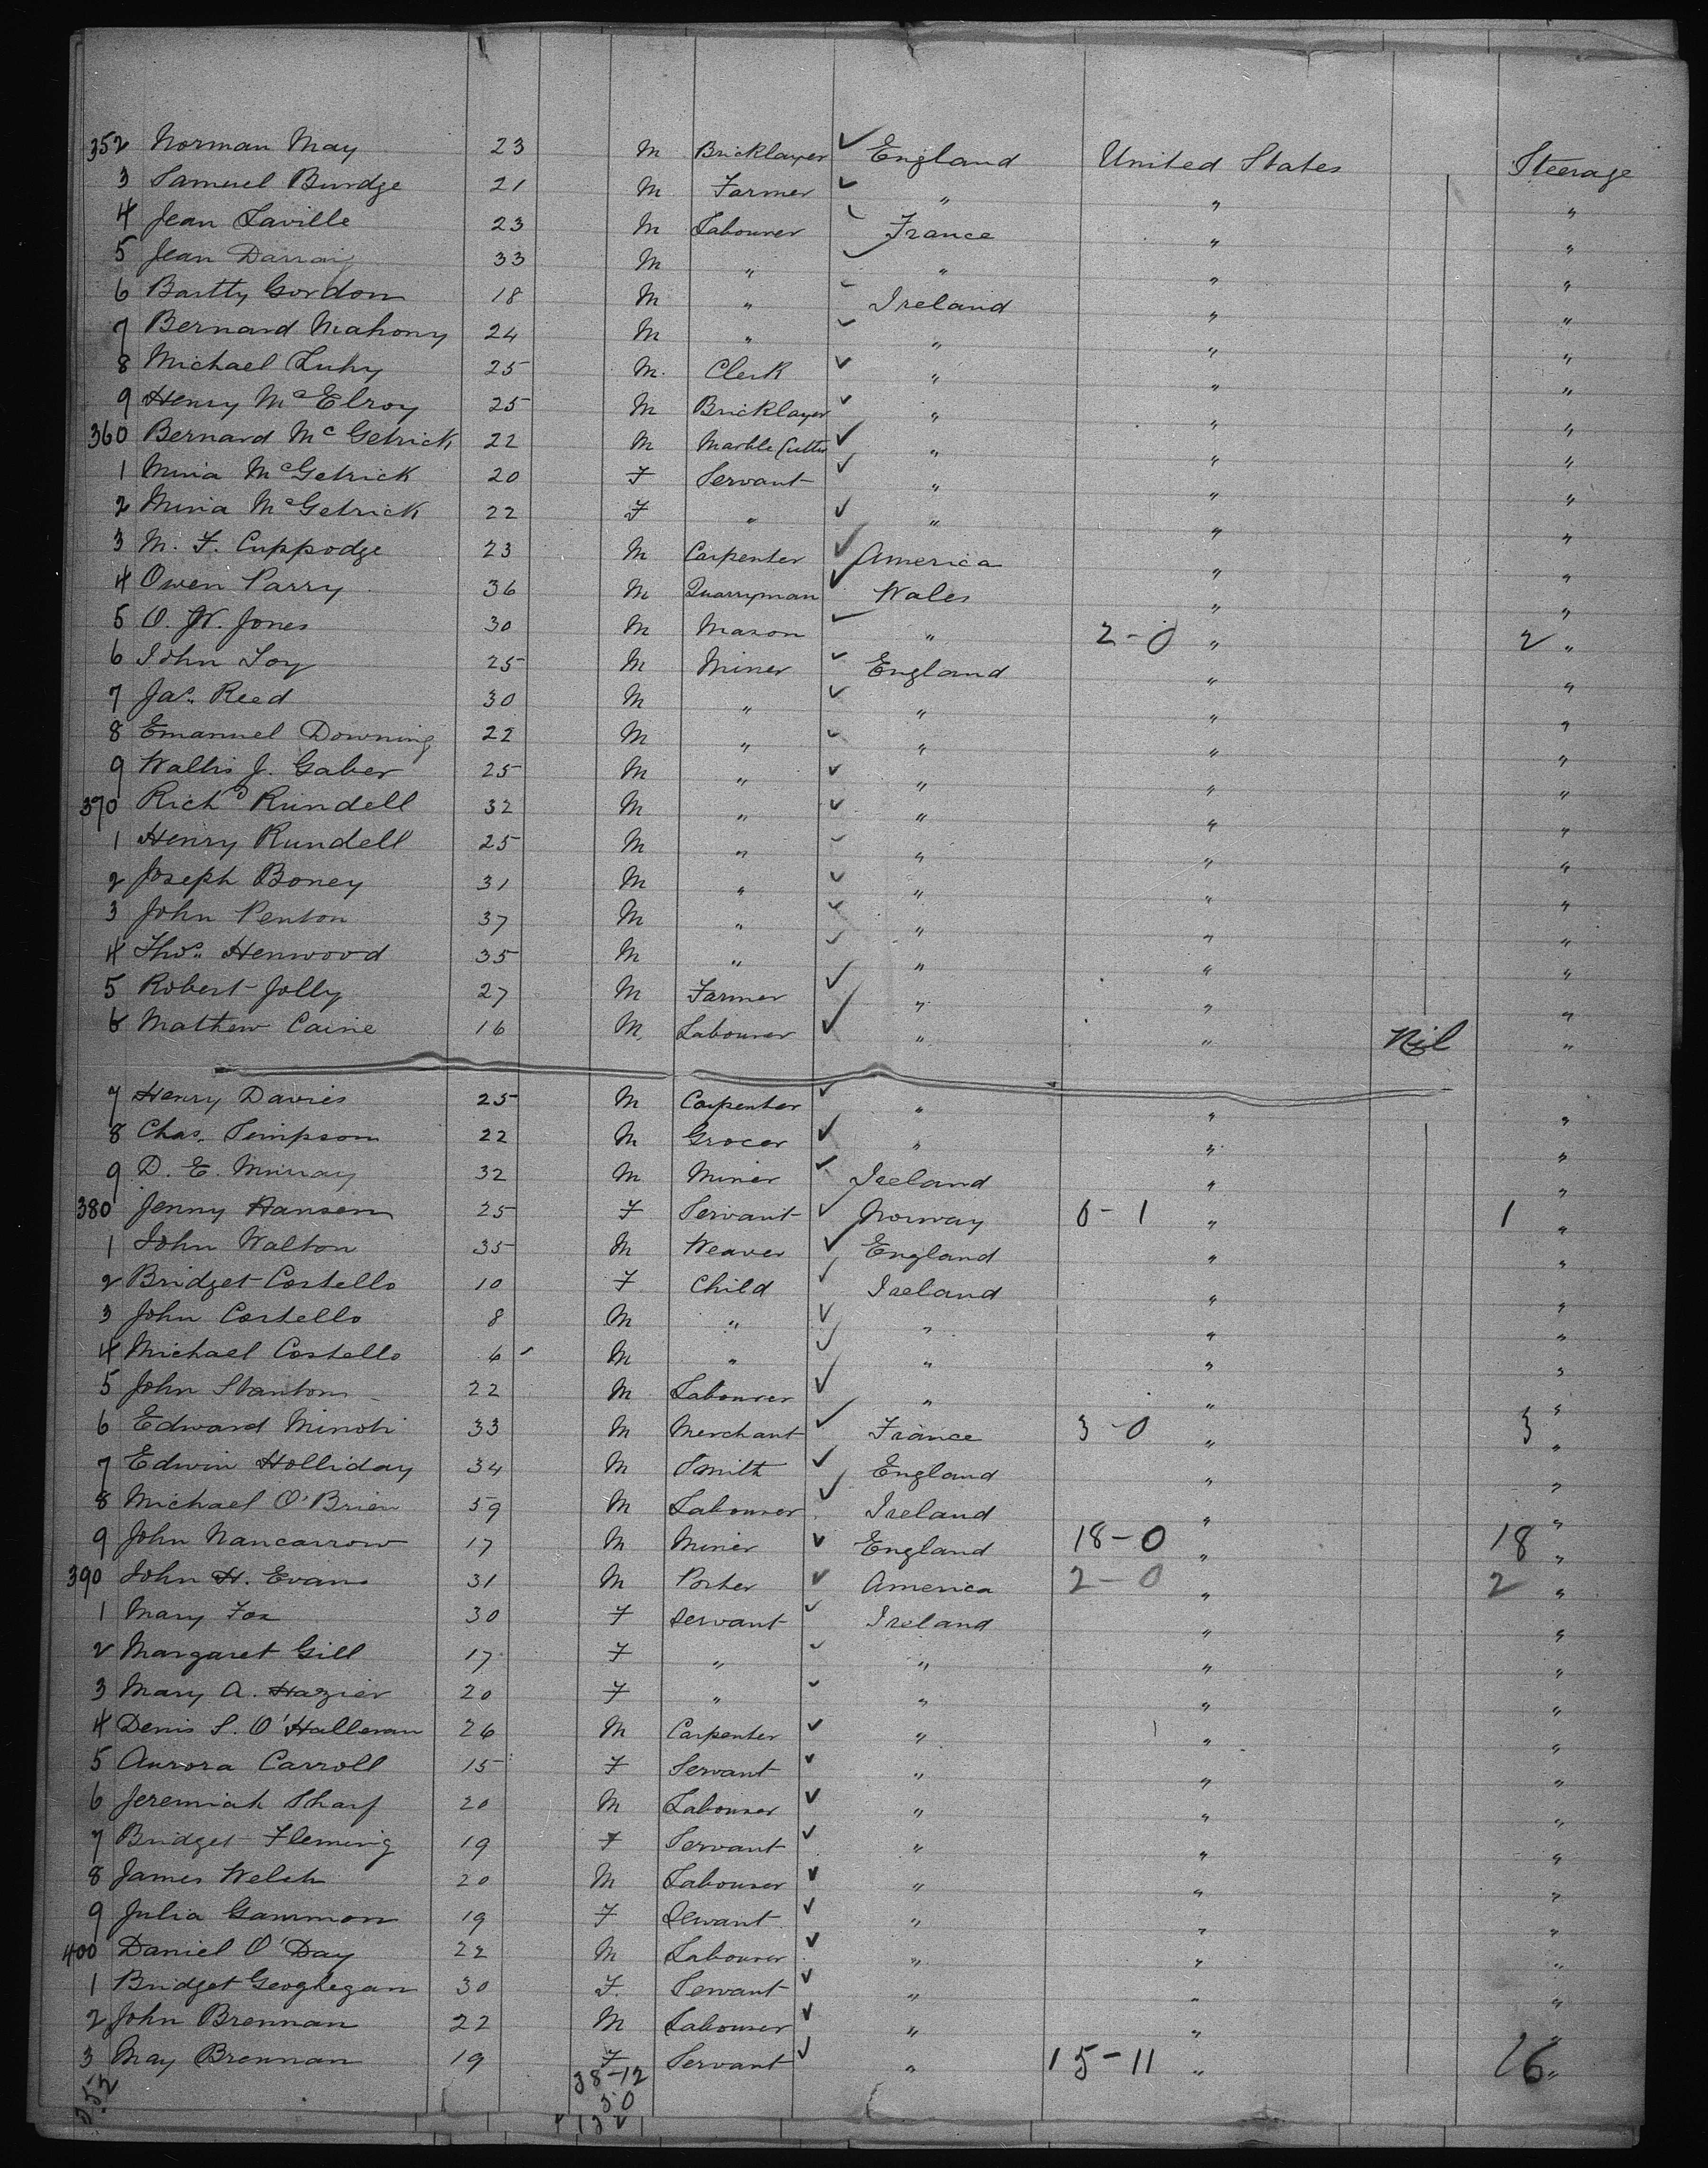 352 Norman May 23 M Bricklayer ✓ England United States Steerage
3 Samuel Burdge 21 M Farmer ✓ " " "
4 Jean Laville 23 M Labourer ✓ France " "
5 Jean 33 M " ✓ " " "
6 Bartty Gordon 18 M " ✓ Ireland " "
7 Bernard Mahony 24 M " ✓ " " "
8 Michael Luhy 25 M. Clerk ✓ " " "
9 Henry McElroy 25 M Bricklayer ✓ " " "
360 Bernard McGetrick 22 M Marble Cutter ✓ " " "
1 McGetrick 20 F Servant ✓ " " "
2 McGetrick 22 F " ✓ " " "
3 M. F. Cuppodge 23 M Carpenter ✓ America " "
4 Owen Parry 36 M Quarryman ✓ Wales " "
5 O. W. Jones 30 M Mason ✓ " 2-0 " 2 "
6 John Toy 25 M Miner ✓ England " "
7 Jas. Reed 30 M " ✓ " " "
8 Emanuel Downing 22 M " ✓ " " "
9 Wallis J. Gaber 25 M " ✓ " " "
370 Richd Rundell 32 M " ✓ " " "
1 Henry Rundell 25 M " ✓ " " "
2 Joseph Boney 31 M " ✓ " " "
3 John Penton 37 M " ✓ " " "
4 Thos. Henwood 35 M " ✓ " " "
5 Robert Jolly 27 M Farmer ✓ " " "
6 Mathew Caine 16 M. Labourer ✓ " " Nil "
7 Henry Davies 25 M Carpenter ✓ " " "
8 Chas. Simpson 22 M Grocer ✓ " " "
9 D. E. Murray 32 M Miner ✓ Ireland " "
380 Jenny Hansen 25 F Servant ✓ Norway 0-1 " 1 "
1 John Walton 35 M Weaver ✓ England " "
2 Bridget Costello 10 F Child ✓ Ireland " "
3 John Costello 8 M " ✓ " " "
4 Michael Costello 6 M " ✓ " " "
5 John Stanton 22 M Labourer ✓ " " "
6 Edward 33 M Merchant ✓ France 3-0 " 3 "
7 Edwin Holliday 34 M Smith ✓ England " "
8 Michael O'Brien 59 M Labourer ✓ Ireland " "
9 John Nancarrow 17 M Miner ✓ England 18-0 " 18 "
390 John H. Evans 31 M Porter ✓ America 2-0 " 2 "
1 Mary Fox 30 F Servant ✓ Ireland " "
2 Margaret Gill 17 F " ✓ " " "
3 Mary A. Hazier 20 F " ✓ " " "
4 Denis S. O'Halleran 26 M Carpenter ✓ " " "
5 Aurora Carroll 15 F Servant ✓ " " "
6 Jeremiah Sharf 20 M Labourer ✓ " " "
7 Bridget Fleming 19 F Servant ✓ " " "
8 James Welsh 20 M Labourer ✓ " " "
9 Julia Gammon 19 F Servant ✓ " " "
400 Daniel O'Day 22 M Labourer ✓ " " "
1 Bridget Geoghegan 30 F. Servant ✓ " " "
2 John Brennan 22 M Labourer ✓ " " "
3 May Brennan 19 F Servant ✓ " 15-11 " 26 "
38-12
30